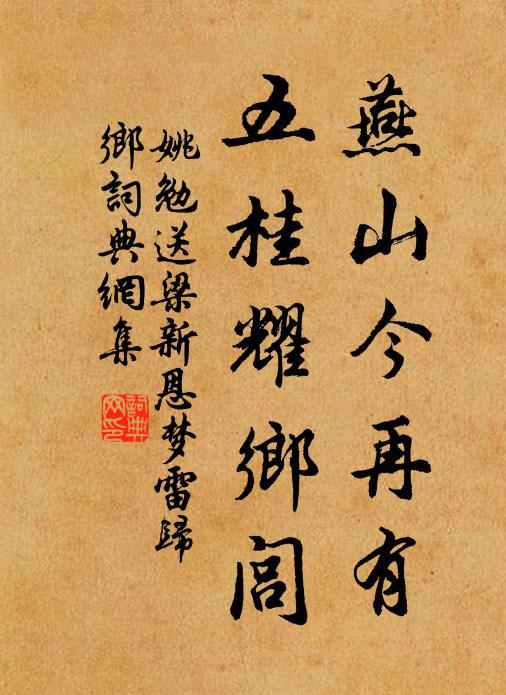 燕山今再有
五桂耀鄉閭
姚勉送梁新恩梦雷歸
鄉詞典網集
詞典
网印